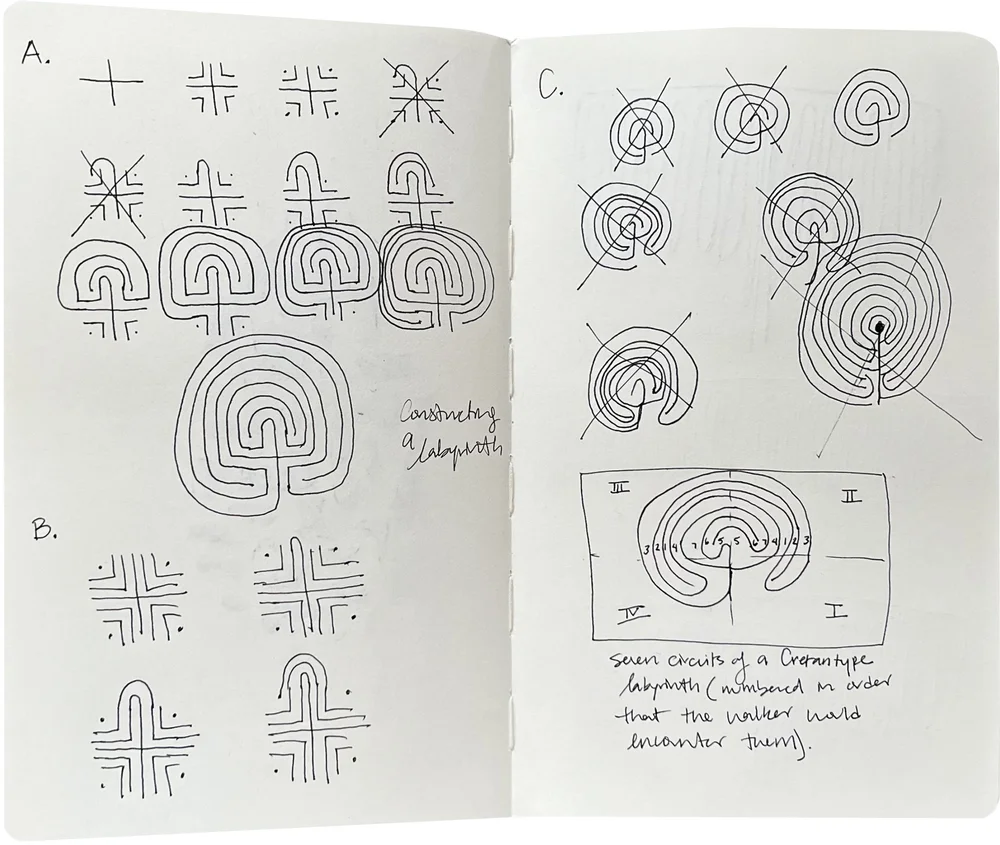 A.
Constructing
a
labyrinth
B.
C.
III
II
3 2 1 4 7 6 5 5 6 7 4 1 2 3
IV
I
Seven circuits of a Cretan type
labyrinth (numbered in order
that the walker would
encounter them).